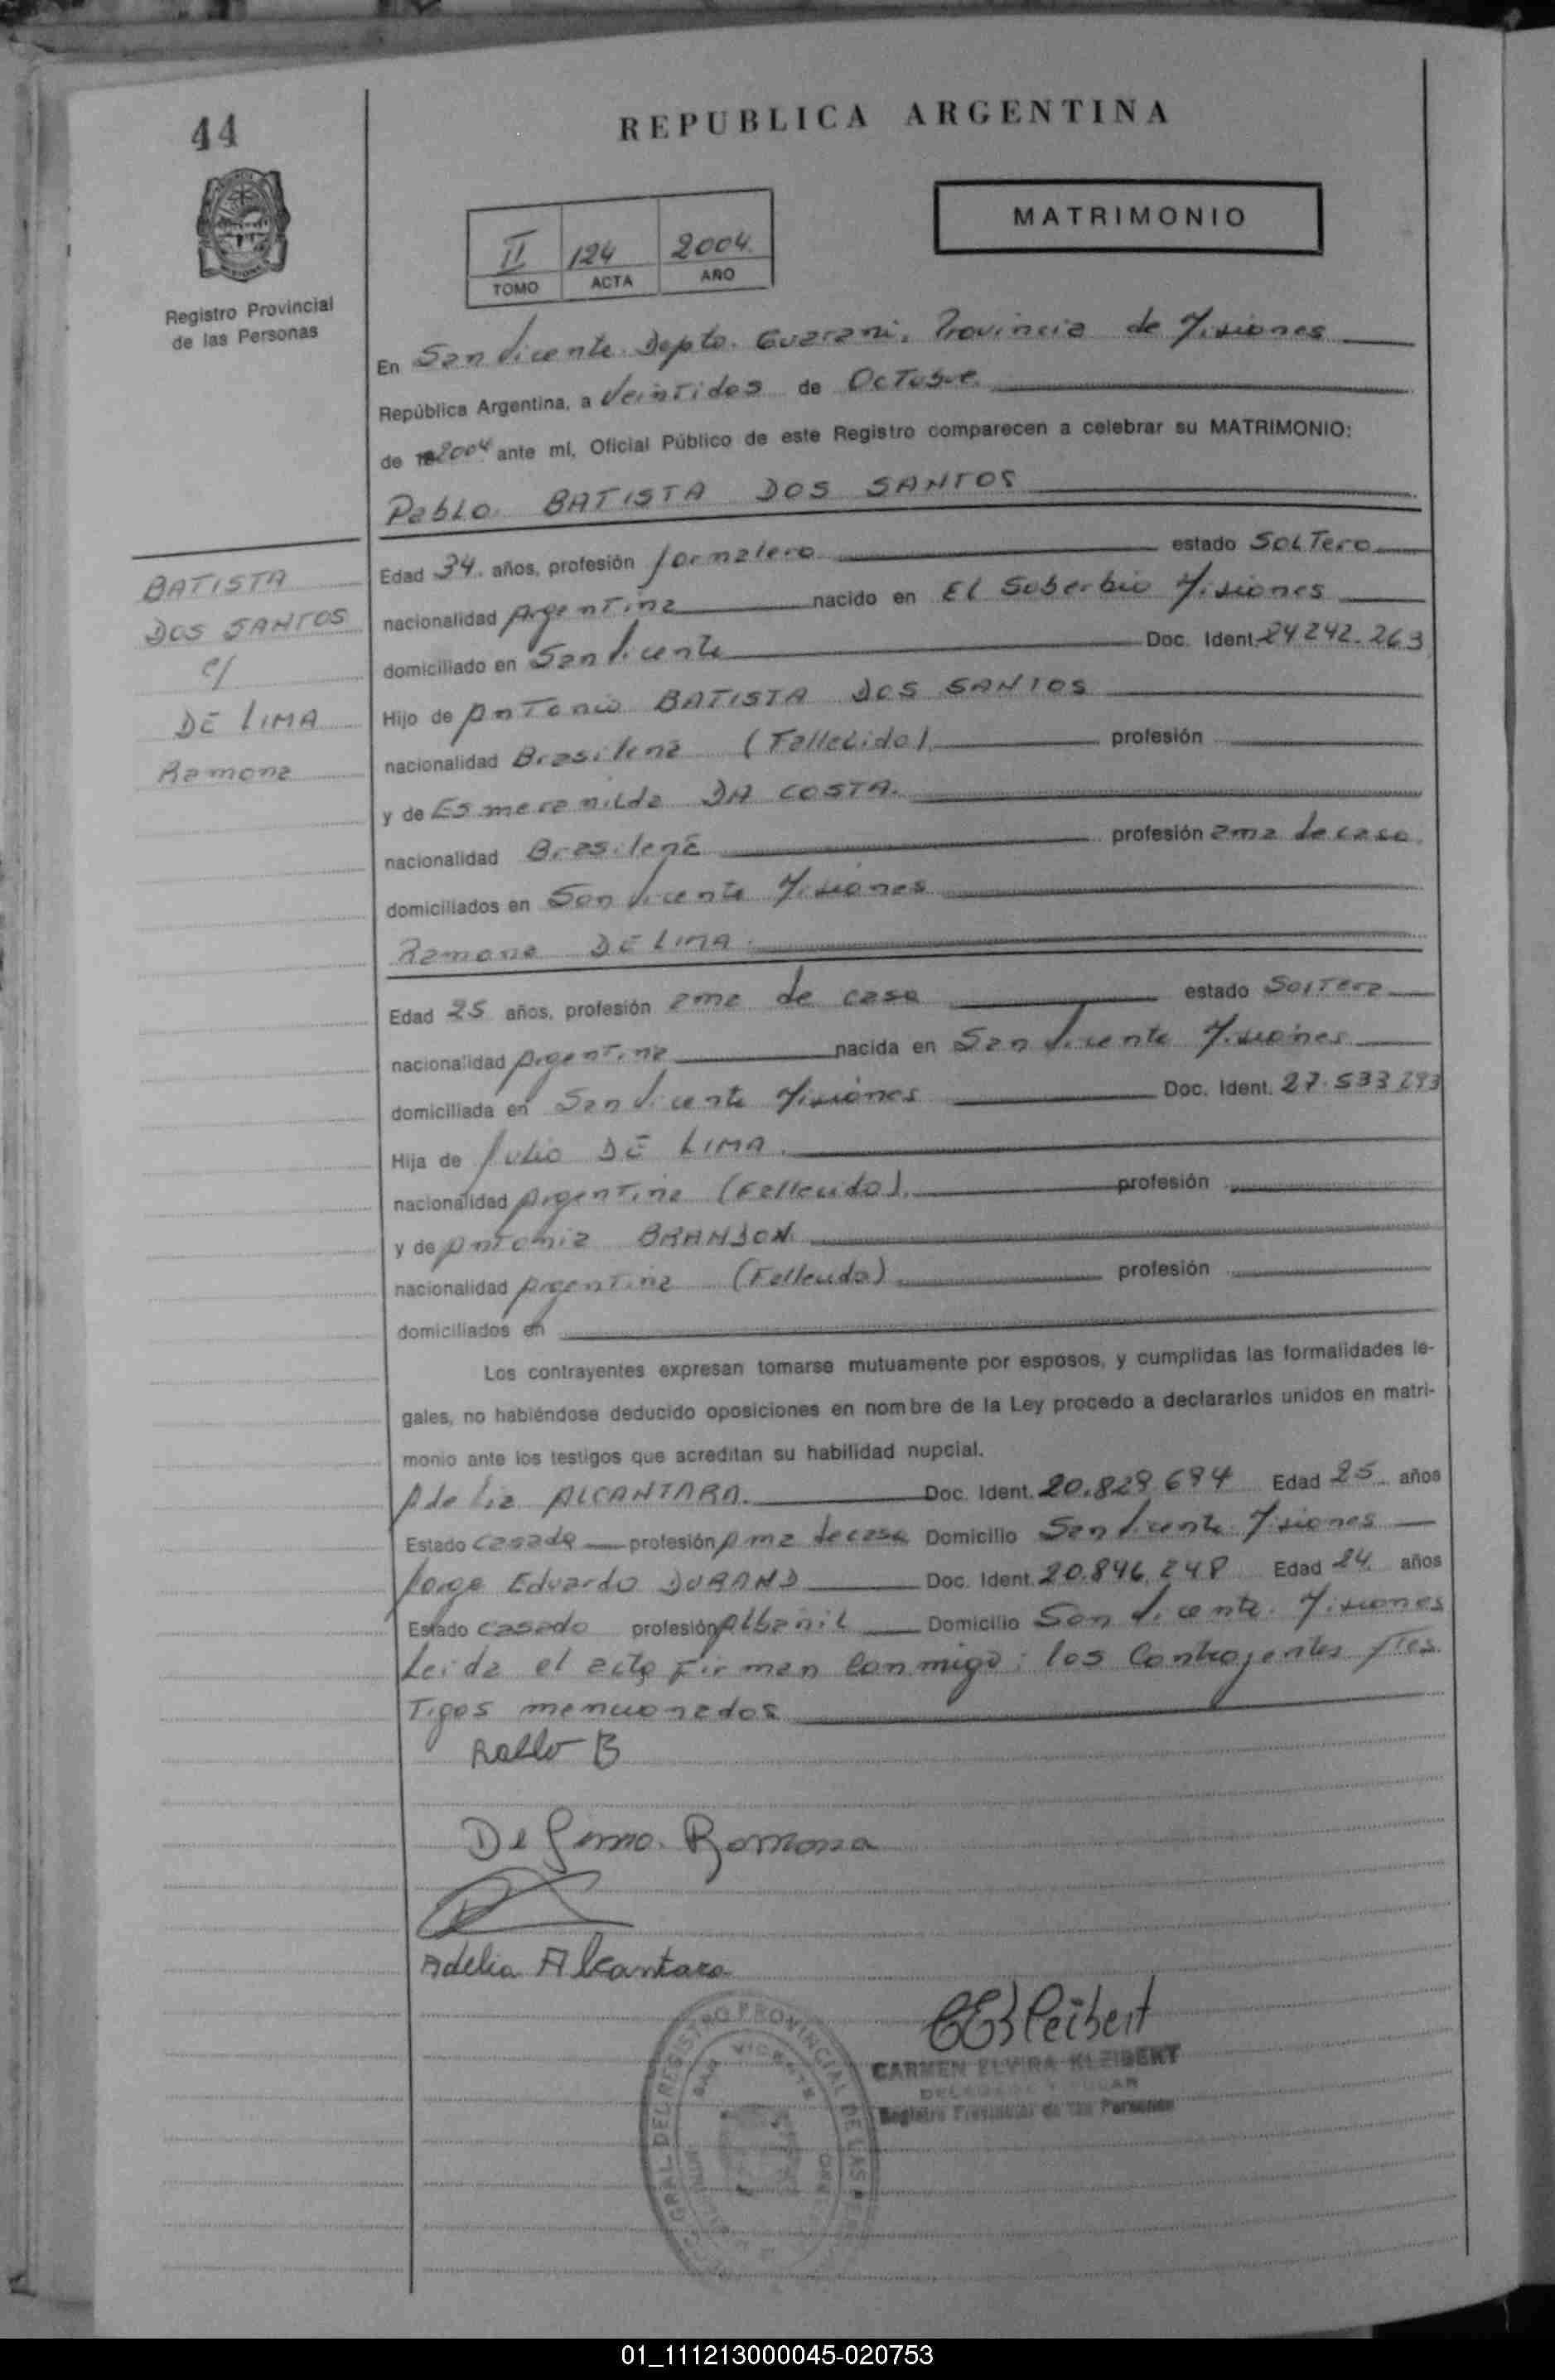 44
REPUBLICA ARGENTINA
MATRIMONIO
II 124 2004
TOMO ACTA AÑO
Registro Provincial
de las Personas
En San Vicente Depto. Guarani, Provincia de Misiones
República Argentina, a Veintidos de Octubre
de 2004 ante mí, Oficial Público de este Registro comparecen a celebrar su MATRIMONIO:
Pablo BATISTA DOS SANTOS
BATISTA
DOS SANTOS
c/
DE LIMA
Ramona
Edad 34 años, profesión Jornalero estado Soltero
nacionalidad Argentina nacido en El Soberbio Misiones
domiciliado en San Vicente Doc. Ident. 24.242.263
Hijo de Antonio BATISTA DOS SANTOS
nacionalidad Brasilena (Fallecido) profesión
y de Esmeranilda DA COSTA.
nacionalidad Brasilena profesión ama de casa
domiciliados en San Vicente Misiones
Ramona DE LIMA
Edad 25 años, profesión ama de casa estado Soltera
nacionalidad Argentina nacida en San Vicente Misiones
domiciliada en San Vicente Misiones Doc. Ident. 27.533.293
Hija de Julio DE LIMA.
nacionalidad Argentina (Fallecido). profesión
y de Antonia BRANDON.
nacionalidad Argentina (Fallecida) profesión
domiciliados en
Los contrayentes expresan tomarse mutuamente por esposos, y cumplidas las formalidades le-
gales, no habiéndose deducido oposiciones en nombre de la Ley procedo a declararlos unidos en matri-
monio ante los testigos que acreditan su habilidad nupcial.
Adelia ALCANTARA. Doc. Ident. 20.829.694 Edad 25 años
Estado casada profesión Ama de casa Domicilio San Vicente Misiones
Jorge Eduardo DURAND Doc. Ident. 20.846.248 Edad 24 años
Estado casado profesión Albañil Domicilio San Vicente. Misiones
Leida el acta Firman conmigo: los Contrayentes y Tes
Tigos mencionados
Pablo B
De Lima. Ramona
Adelia Alcantara
CEKleibert
CARMEN ELVIRA KLEIBERT
Registro Provincial de las Personas
GRAL DEL REGISTRO PROVINCIAL DE LAS
SAN VICENTE
01_111213000045-020753